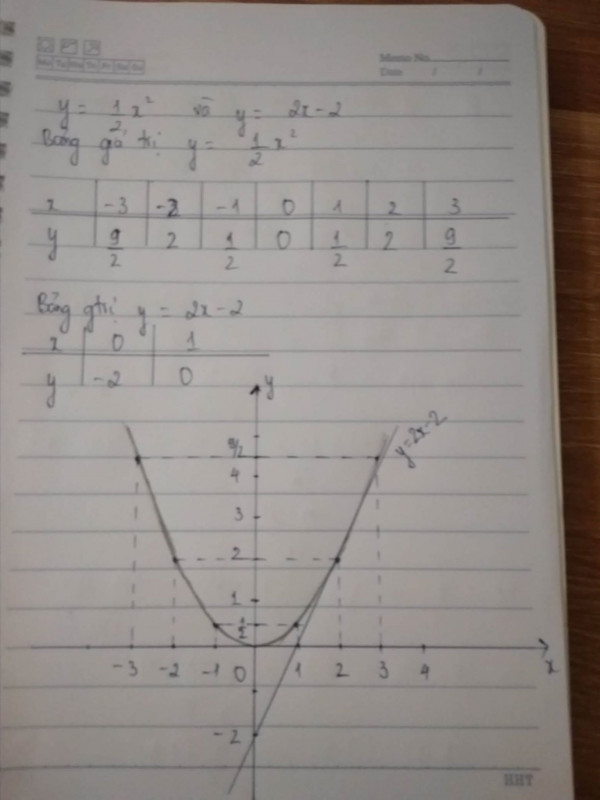 Memo No.
Date / /
Mo Tu We Th Fr Sa Su
y = 1/2 x² và y = 2x - 2
Bảng giá trị y = 1/2 x²
x -3 -2 -1 0 1 2 3
y 9/2 2 1/2 0 1/2 2 9/2
Bảng gtrị y = 2x - 2
x 0 1
y -2 0
y
y=2x-2
9/2
4
3
2
1
1/2
-3 -2 -1 0 1 2 3 4 x
-2
HHT